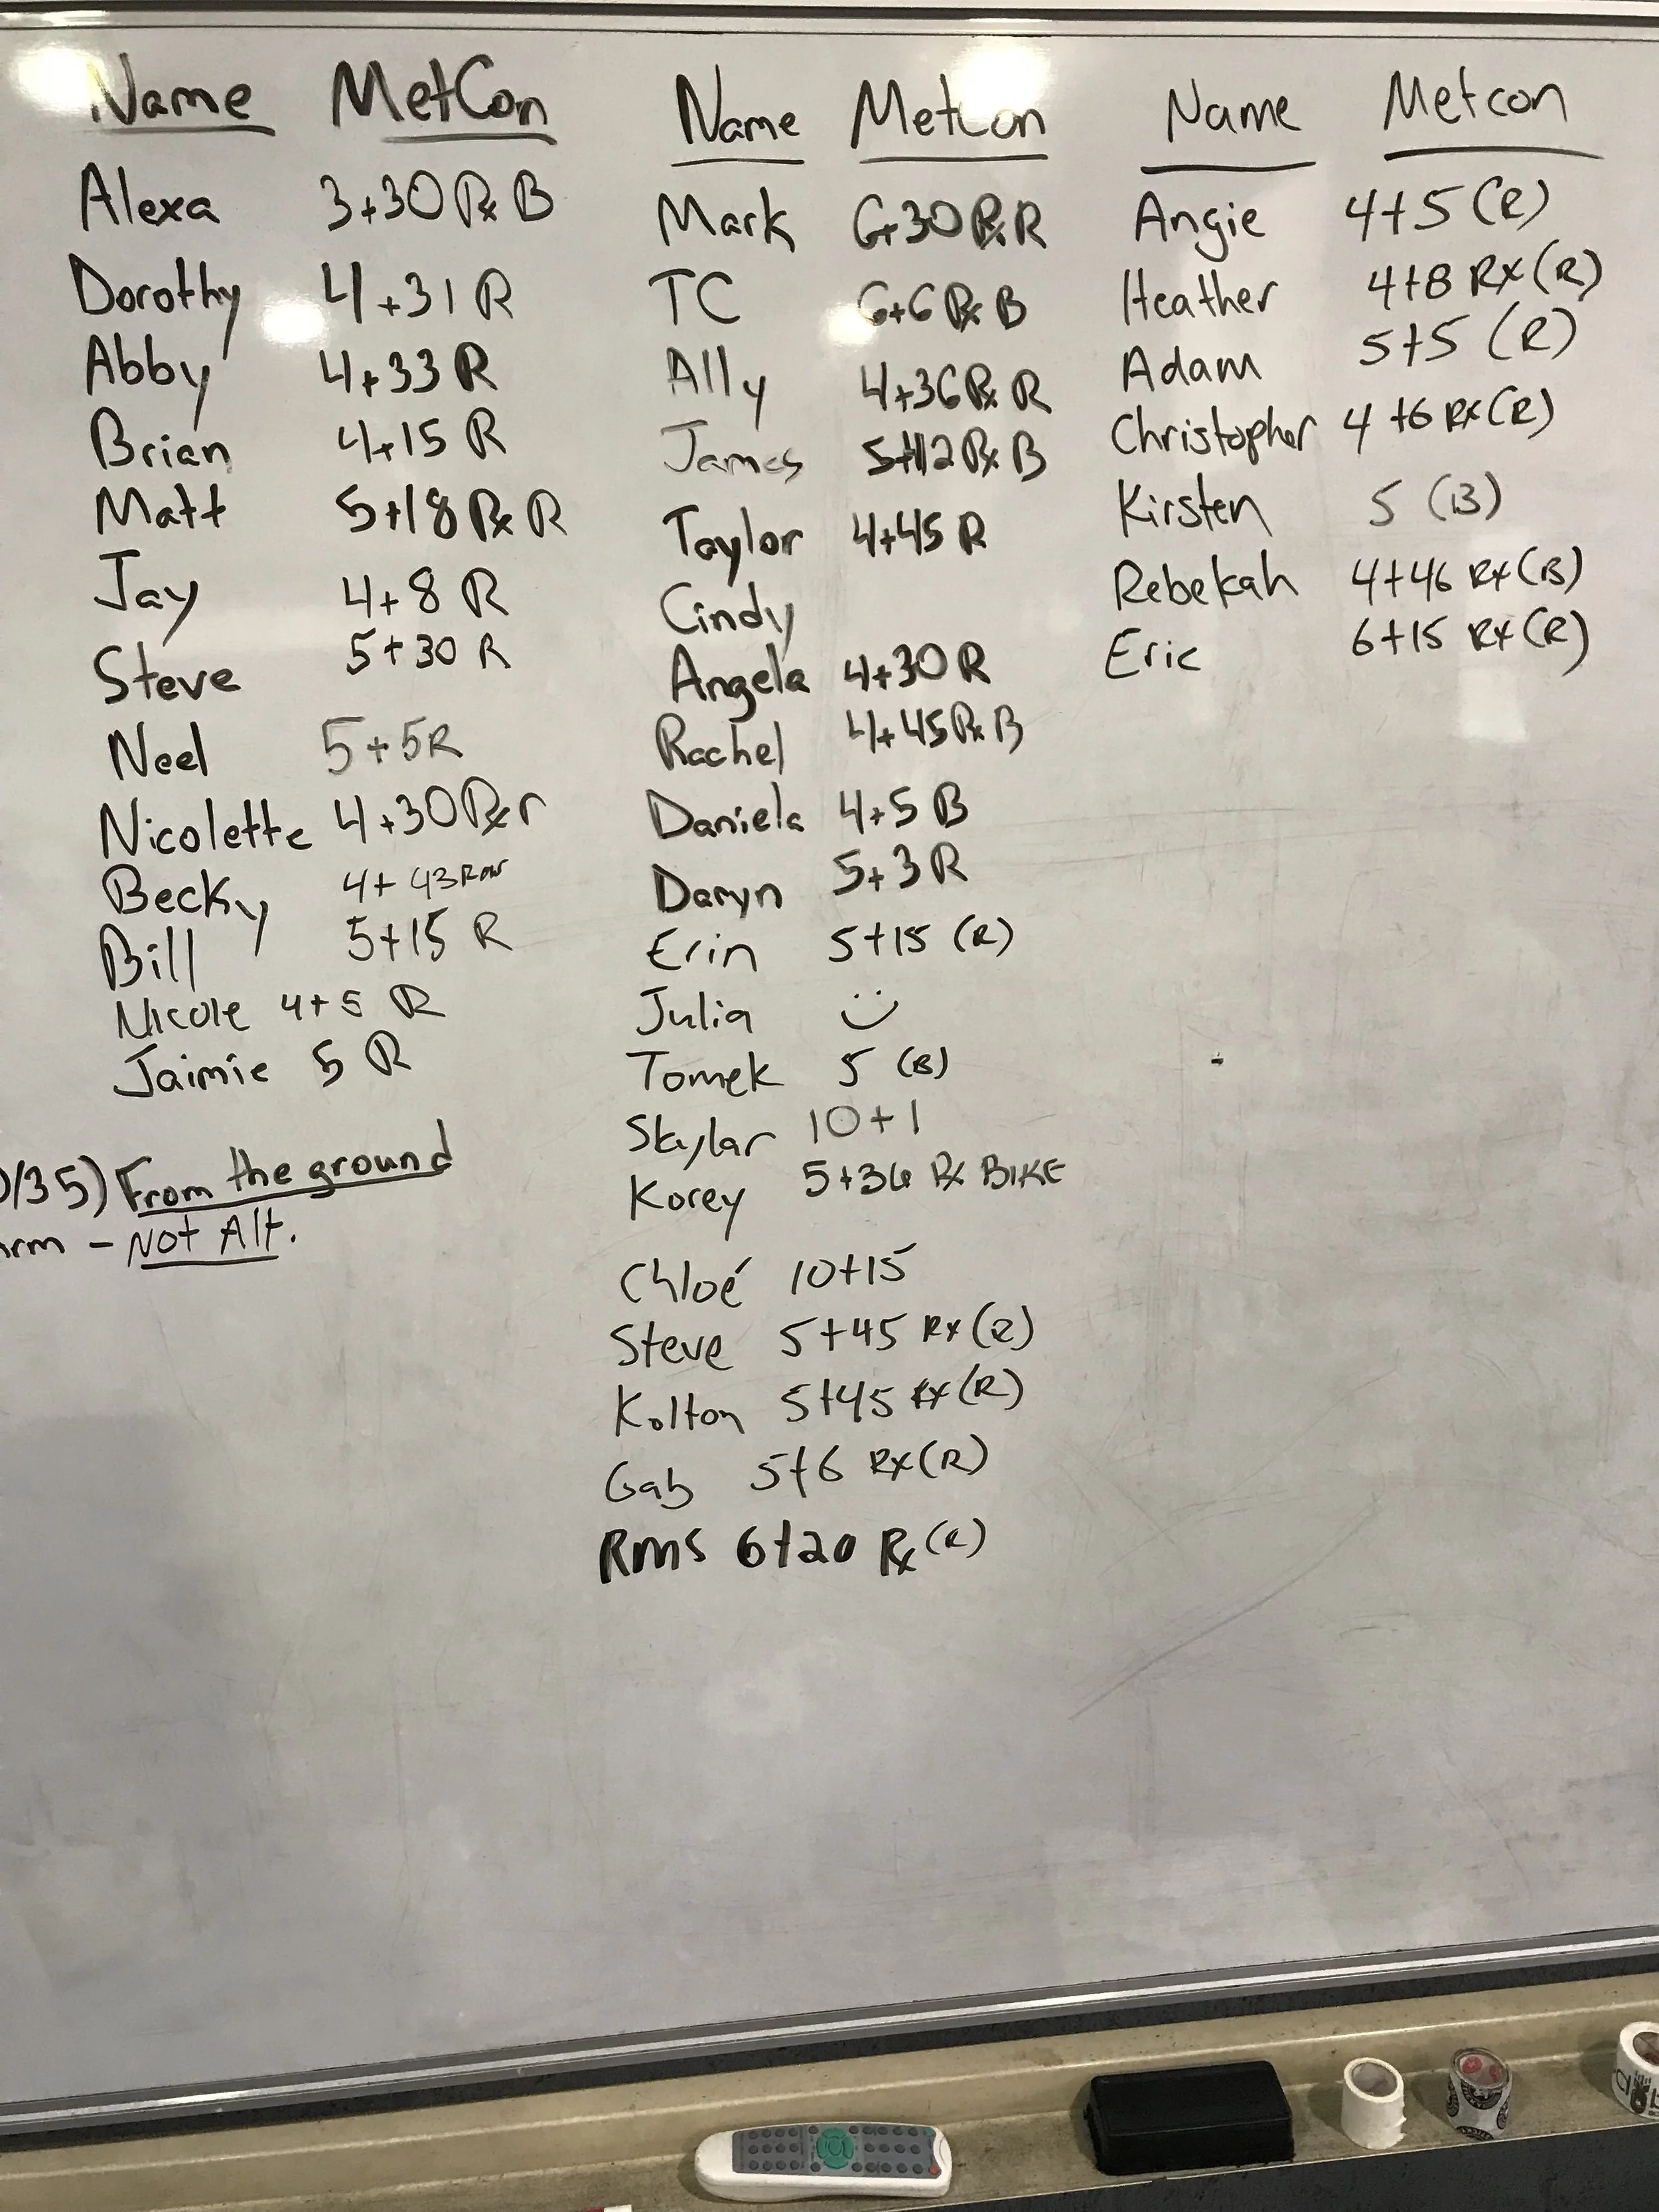 Name MetCon
Alexa 3+30 Rx B
Dorothy 4+31 R
Abby 4+33 R
Brian 4+15 R
Matt 5+18 Rx R
Jay 4+8 R
Steve 5+30 R
Neel 5+5R
Nicolette 4+30 Rx r
Becky 4+43 Row
Bill 5+15 R
Nicole 4+5 R
Jaimie 5 R
/35) From the ground
- NOT Alt.
Name MetCon
Mark 6+30 Rx R
TC 6+6 Rx B
Ally 4+36 Rx R
James 5+12 Rx B
Taylor 4+45 R
Cindy
Angela 4+30 R
Rachel 4+45 Rx B
Daniela 4+5 B
Daryn 5+3 R
Erin 5+15 (R)
Julia
Tomek 5 (B)
Skylar 10+1
Korey 5+36 Rx BIKE
Chloé 10+15
Steve 5+45 Rx (R)
Kolton 5+45 Rx (R)
Gab 5+6 Rx (R)
RMS 6+20 Rx (R)
Name Metcon
Angie 4+5 (R)
Heather 4+8 Rx (R)
Adam 5+5 (R)
Christopher 4+6 Rx (R)
Kirsten 5 (B)
Rebekah 4+46 Rx (B)
Eric 6+15 Rx (R)